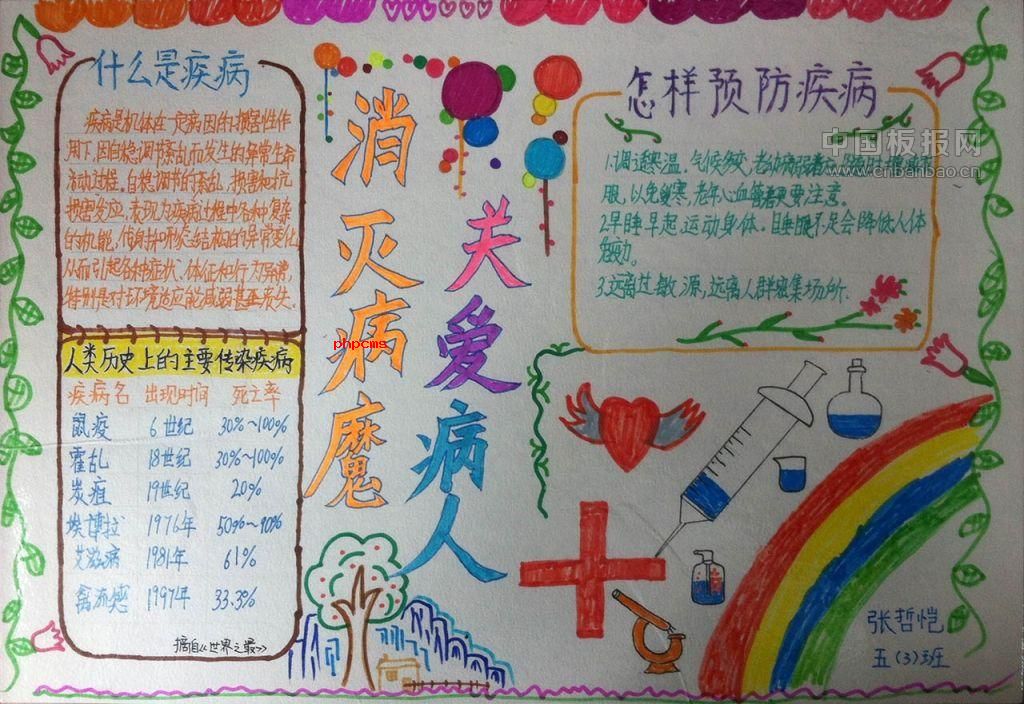 什么是疾病
疾病是机体在一定病因的损害性作
用下,因自稳调节紊乱而发生的异常生命
活动过程。自稳调节的紊乱,损害和抗
损害反应,表现为疾病过程中各种复杂
的机能,代谢和形态结构的异常变化
从而引起各种症状、体征和行为异常,
特别是对环境适应能力减弱甚至丧失。
人类历史上的主要传染疾病
疾病名 出现时间 死亡率
鼠疫 6世纪 30%~100%
霍乱 18世纪 30%~100%
炭疽 19世纪 20%
埃博拉 1976年 50%~90%
艾滋病 1981年 61%
禽流感 1997年 33.3%
摘自《世界之最》
消灭病魔
关爱病人
phpcms
怎样预防疾病
中国板报网
www.cnbanbao.cn
1.调适寒温。气候多变,老幼病弱者
服,以免受寒,老年心血管者更要注意。
2.早睡早起,运动身体。睡眠不足会降低人体
3.远离过敏源,远离人群密集场所.
张哲恺
五(3)班